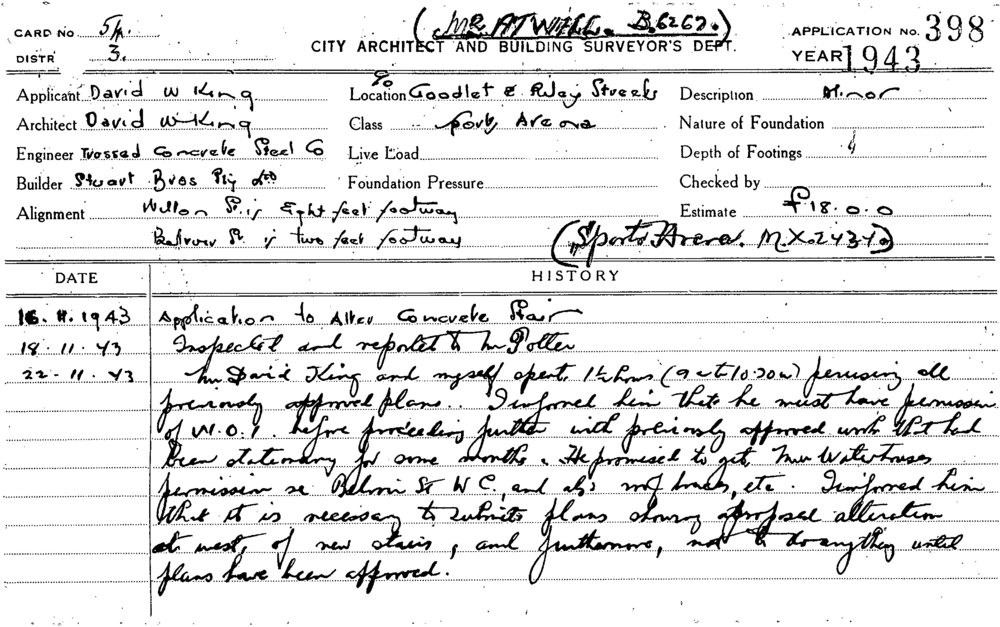 (MR. ATWILL. B.6267.)
CARD No 5/1.
CITY ARCHITECT AND BUILDING SURVEYOR'S DEPT.
APPLICATION No. 398
DISTR 3.
YEAR 1943
Applicant David W King
Location Goodlet & Riley Streets
Description Minor
Architect David W King
Class Sports Arena
Nature of Foundation
Engineer Trussed Concrete Steel Co
Live Load
Depth of Footings
Builder Stuart Bros Pty Ltd
Foundation Pressure
Checked by
Alignment St is Eight feet footway
Estimate £18.0.0
St is two feet footway
(Sports Arena. M.X.2434)
DATE HISTORY
16.11.1943 Application to Alter Concrete Stair
18.11.43 Inspected and reported to Mr Potter
22.11.43 Mr David King and myself spent 1½ hours (9 to 10.30am) perusing all
previously approved plans. I informed him that he must have permission
of W.O.I. before proceeding further with previously approved work that had
been stationary for some months. He promised to get Mr Waterhouse's
permission re St W.C., and also roof trusses, etc. I informed him
that it is necessary to submit plans showing proposed alteration
at west of new stairs, and furthermore, not to do anything until
plans have been approved.